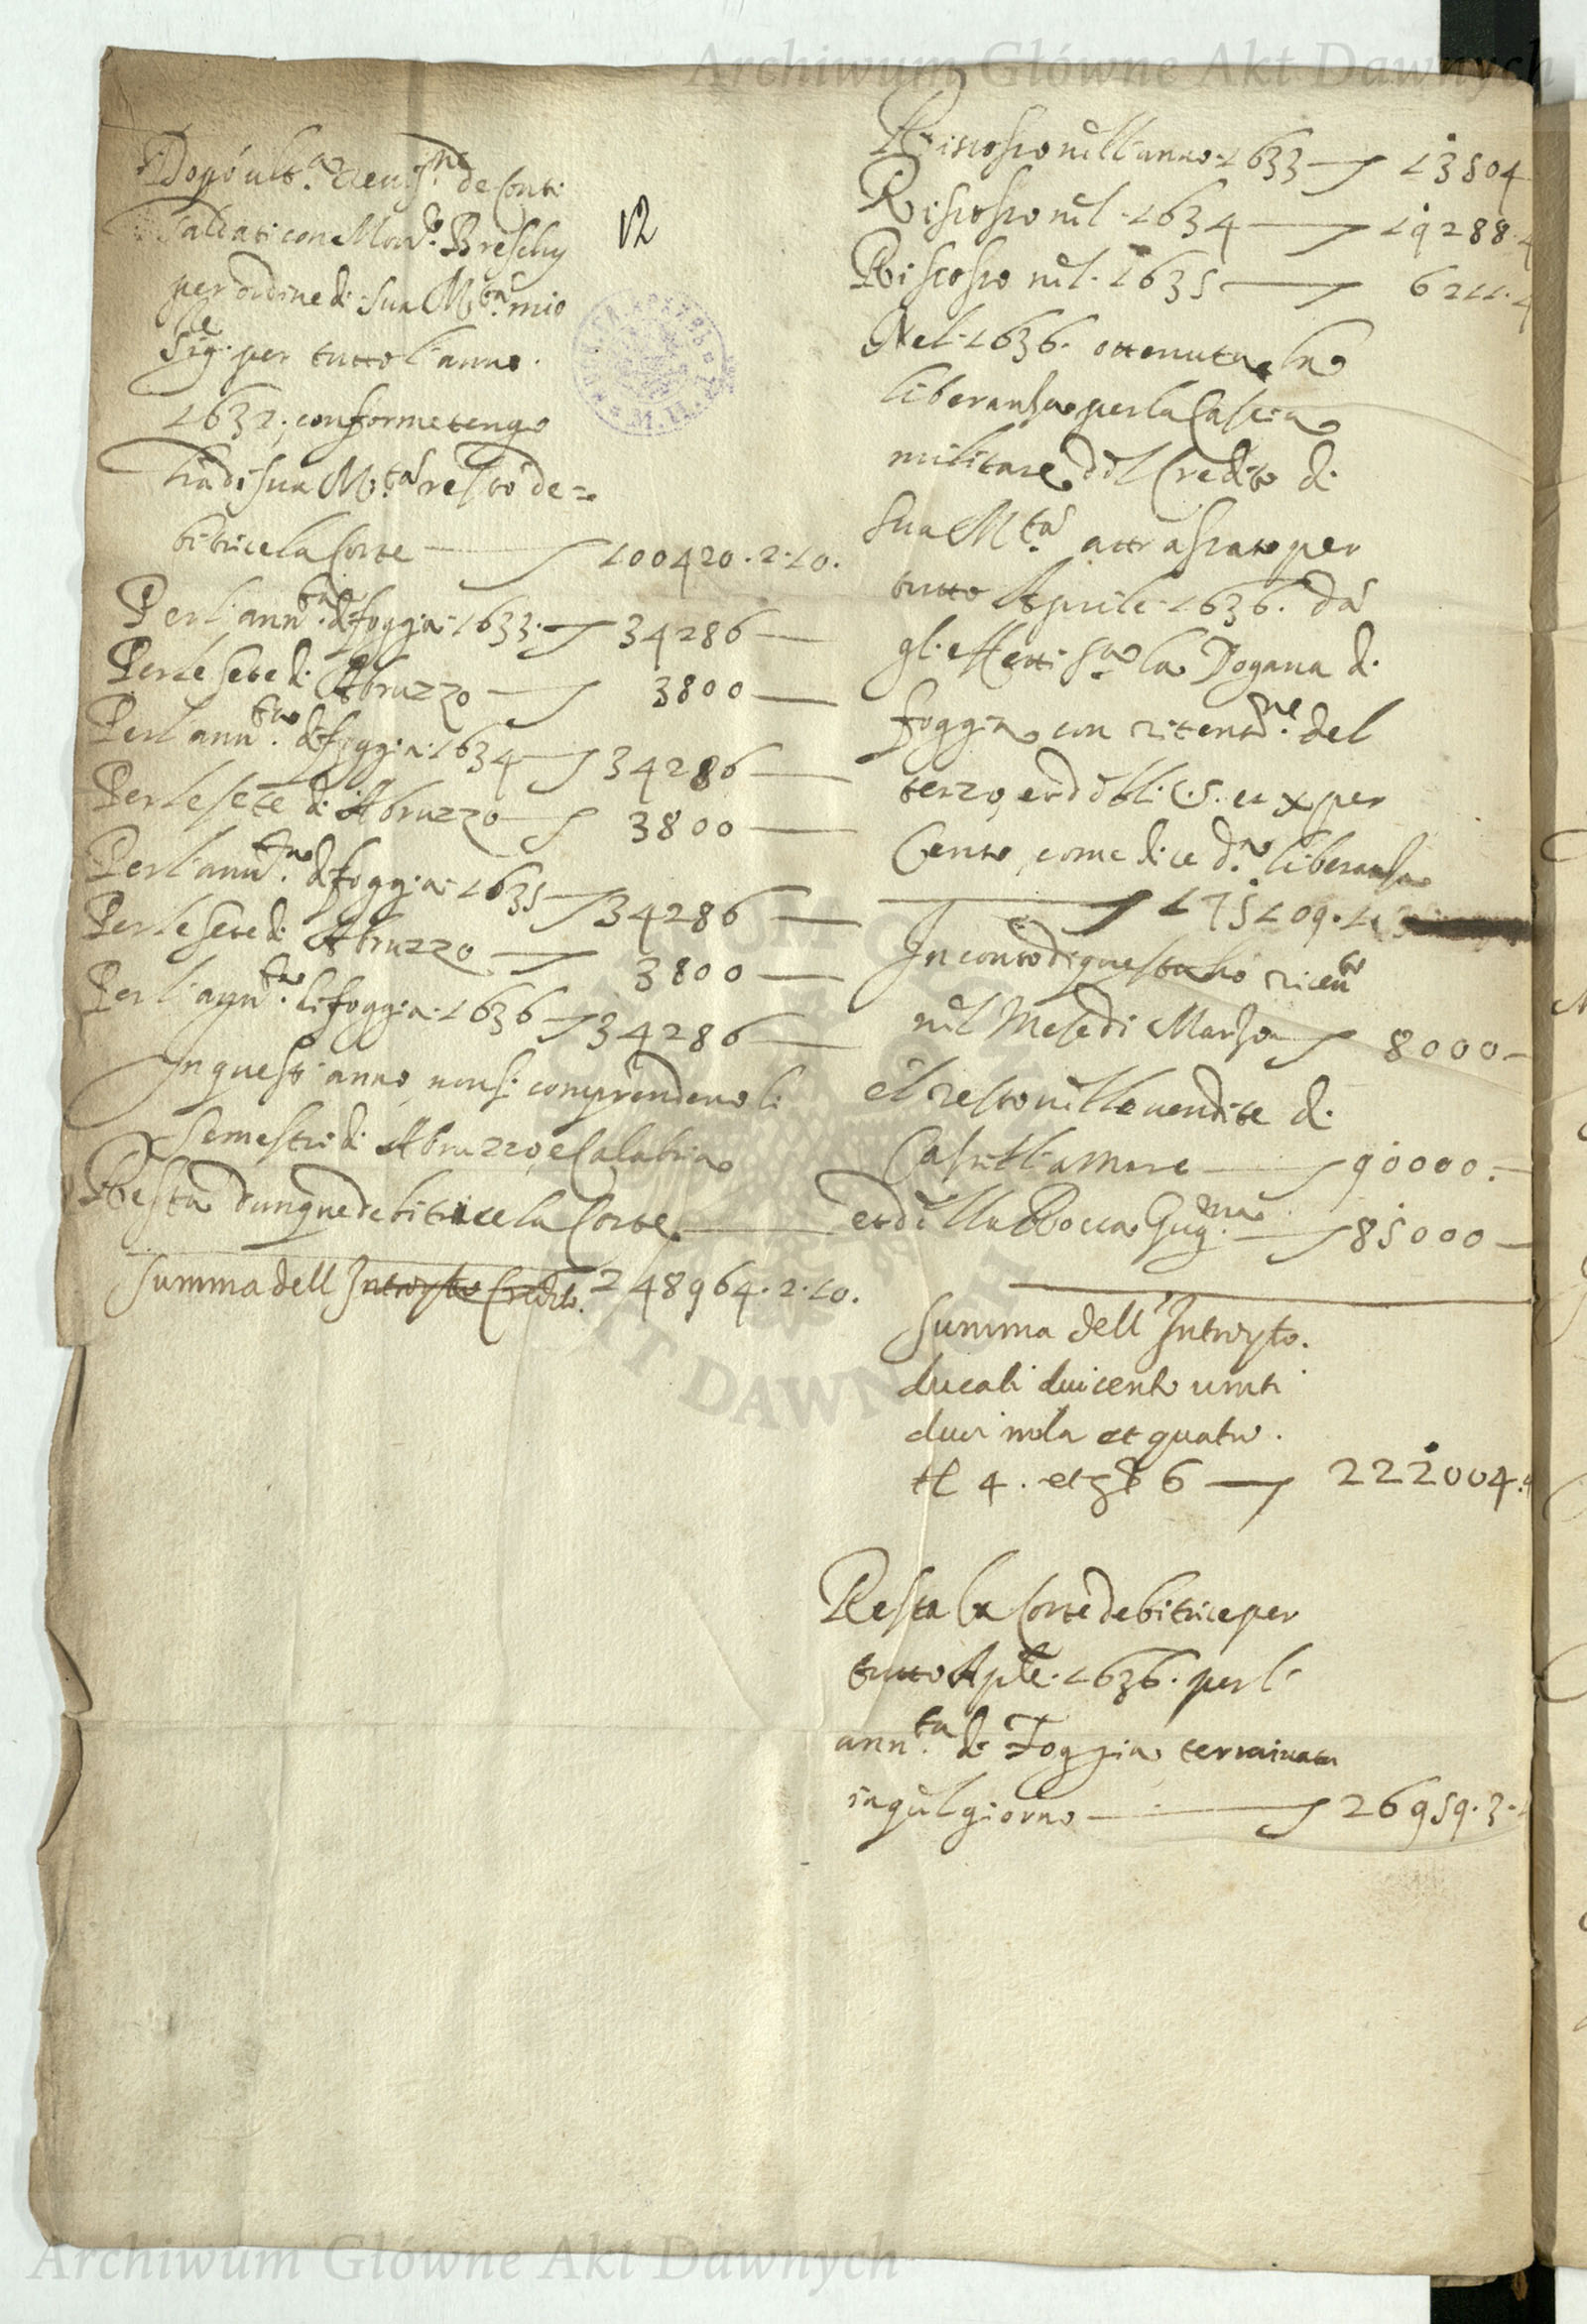 Archiwum Główne Akt Dawnych
12
Dopó ult.ª reuis.ne de Conti
saldati con Mons.r Breschy
per ordine di Sua M.tà mio
Sig.re per tutto l'anno
1632, conforme tengo
di sua M.tà restó de=
bitrice la Corte — 100420.2.10.
Per l'ann.ta di foggia 1633. — 34286 —
Per le sete di Abruzzo — 3800 —
Per l'ann.ta di foggia 1634 — 34286 —
Per le sete di Abruzzo — 3800 —
Per l'ann.ta di foggia 1635 — 34286 —
Per le sete di Abruzzo — 3800 —
Per l'ann.ta di foggia 1636 — 34286 —
In questi anno non si comprendeno li
semestri di Abruzzo, e Calabria
Resta dunque debitrice la Corte
Summa dell Introyto Credito. 248964.2.10.
Riscosso nell'anno 1633 — 13504
Riscosso nel 1634 — 19288.4
Riscosso nel 1635 — 6211.4
Nel 1636. ottenuta la
liberanza per la Cassia
militare del Credito di
Sua M.tà attrassato per
tutto Aprile 1636. da
gl'effetti la Dogana di
foggia con ritent.ne del
terzo, et delli 5. et x per
Cento, come dice d.ª liberanza
— 175109.
In conto di questa ho riceu.to
nel Mese di Marzo — 8000 —
el resto nelle uendite di
Castell'amare — 90000. —
et della Rocca Gug.ma — 85000 —
Summa dell'Introyto.
ducati duicento uinti
dui mila et quatro.
tt 4. et gr 6 — 222004.4
Resta la Corte debitrice per
tutto Aple. 1636. per l'
ann.ta di Foggia terminata
in quel giorno — 26959.3.
Archiwum Główne Akt Dawnych